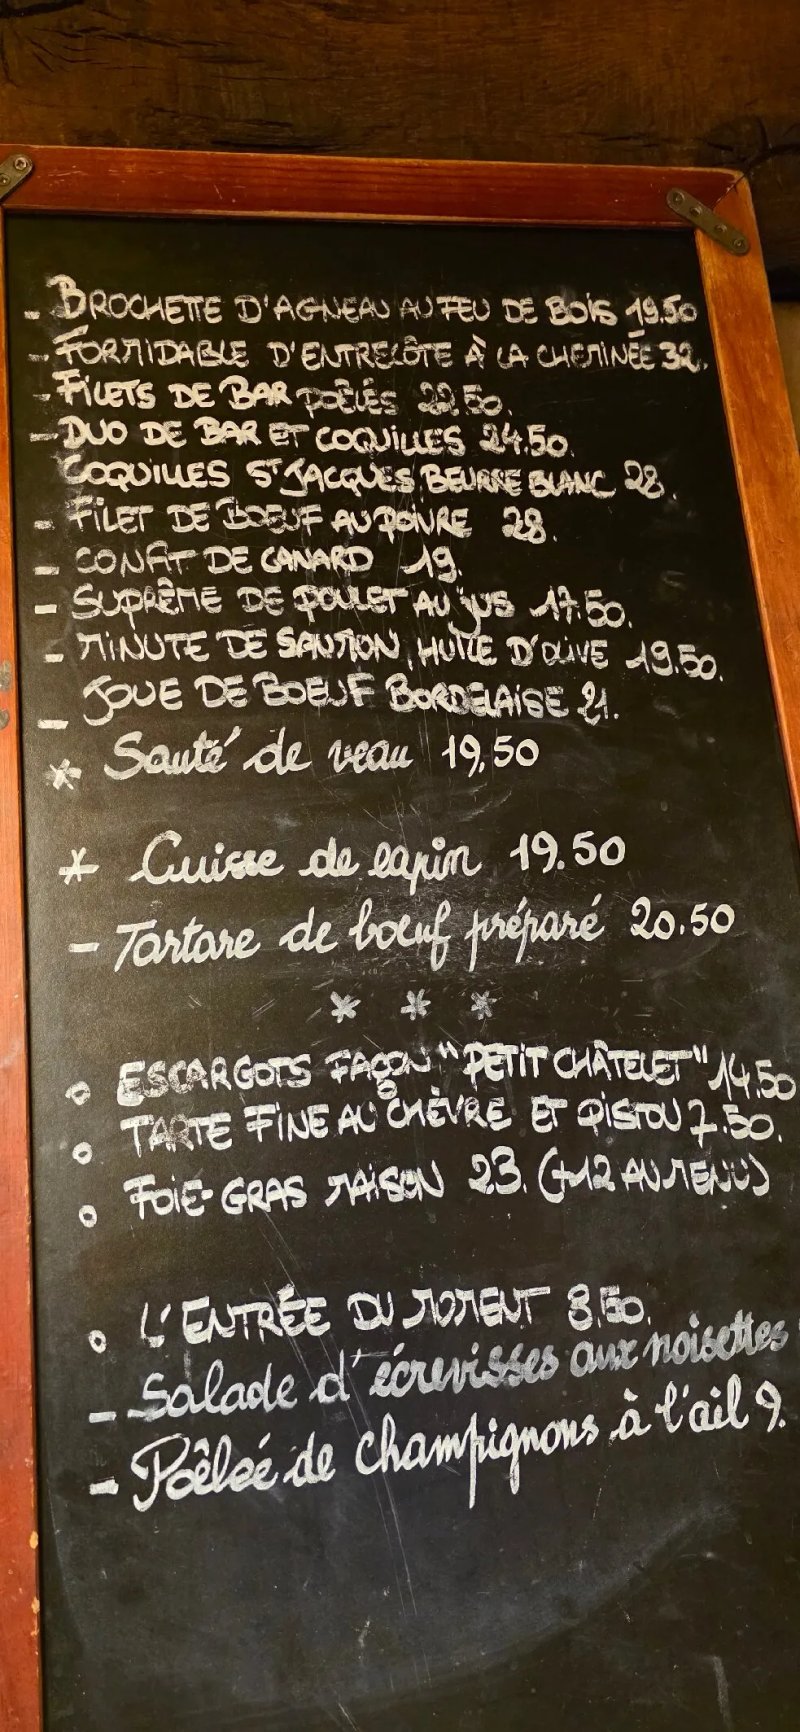 - BROCHETTE D'AGNEAU AU FEU DE BOIS 19.50
- FORMIDABLE D'ENTRECÔTE À LA CHEMINÉE 32.
- FILETS DE BAR POÊLÉS 22.50.
- DUO DE BAR ET COQUILLES 24.50.
COQUILLES ST JACQUES BEURRE BLANC 28.
- FILET DE BOEUF AU POIVRE 28.
- CONFIT DE CANARD 19.
- SUPRÊME DE POULET AU JUS 17.50.
- MINUTE DE SAUMON, HUILE D'OLIVE 19.50.
- JOUE DE BOEUF BORDELAISE 21.
* Sauté de veau 19,50
* Cuisse de lapin 19.50
- Tartare de bœuf préparé 20.50
* * *
o ESCARGOTS FAÇON "PETIT CHÂTELET" 14.50
o TARTE FINE AU CHÈVRE ET PISTOU 7.50.
o FOIE-GRAS MAISON 23. (+12 AU MENU)
o L'ENTRÉE DU MOMENT 8.50.
- Salade d'écrevisses aux noisettes
- Poêlée de champignons à l'ail 9.